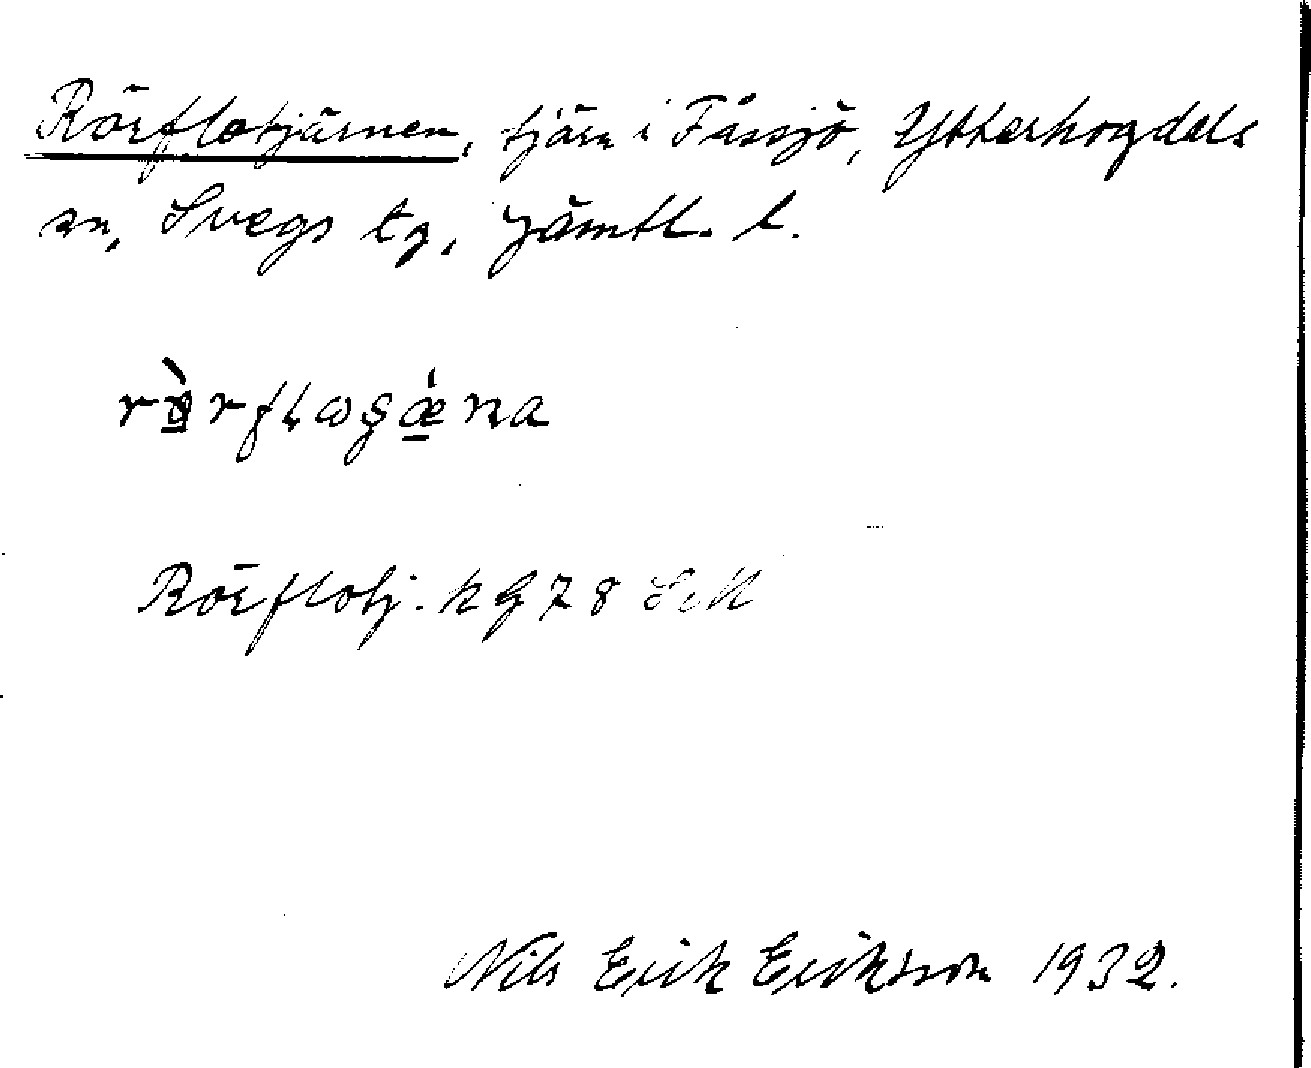 Rörflotjärnen, tjärn i Fåssjö, Ytterhogdals
sn, Svegs tg, Jämtl. l.
Rörflotj. k 978
Nils Erik Eriksson 1932.